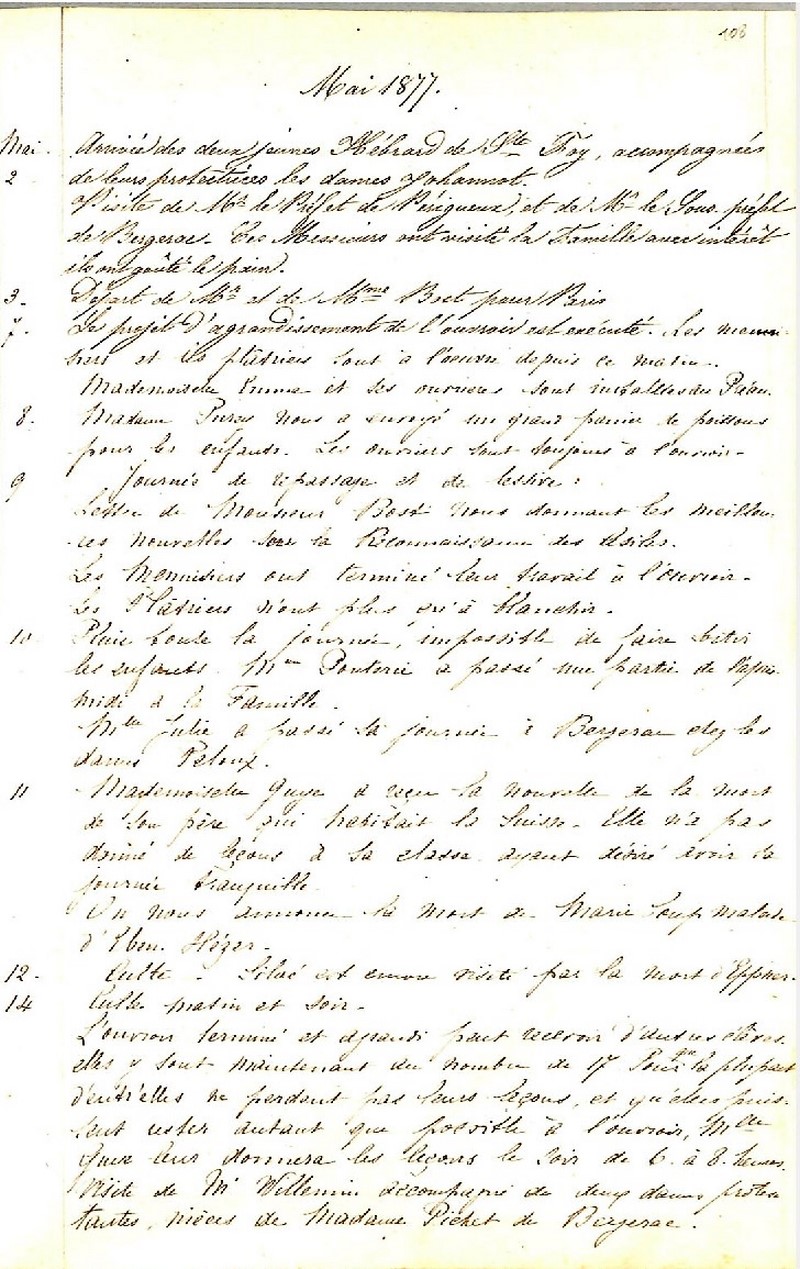 108
Mai 1877.
Mai. Arrivée des deux jeunes Hébrard de Ste Foy, accompagnées
2 de leurs protectrices les dames Johannot.
Visite de Mr le Préfet de Périgueux, et de Mr le Sous-préfet
de Bergerac. Ces Messieurs ont visité la Famille avec intérêt
ils ont goûté le pain.
3. Départ de Mr et de Mme Bost pour Paris
7. Le projet d'agrandissement de l'ouvroir est exécuté. Les menui-
siers et les plâtriers sont à l'oeuvre depuis ce matin.
Mademoiselle Emma et ses ouvrières sont installées au
8. Madame nous a envoyé un grand panier de poissons
pour les enfants. Les ouvriers sont toujours à l'ouvroir-
9 Journée de repassage et de lessive:
Lettre de Monsieur Bost nous donnant les meilleu-
res nouvelles sur la Reconnaissance des Asiles.
Les Menuisiers ont terminé leur travail à l'ouvroir-
Les Plâtriers n'ont plus qu'à blanchir.
10 Pluie toute la journée, impossible de faire sortir
les enfants. Mme Ponterie a passé une partie de l'après
midi à la Famille.
Mlle Julie a passé la journée à Bergerac chez les
dames Peloux.
11 Mademoiselle a reçu la nouvelle de la mort
de son père qui habitait la Suisse. Elle n'a pas
donné de leçons à sa classe ayant désiré avoir sa
journée tranquille.
On nous annonce la mort de Marie Loup malade
d'Eben-Hézer-
12. Culte. Siloé est encore visité par la mort d'
14 Culte matin et soir.
L'ouvroir terminé et agrandi peut recevoir d'autres élèves.
elles y sont maintenant au nombre de 17 Pour que la plupart
d'entr'elles ne perdent pas leurs leçons, et qu'elles puis-
sent rester autant que possible à l'ouvroir, Mlle
leur donnera les leçons le soir de 6. à 8. heures.
Visite de Mr Willemin accompagné de deux dames protes
tantes, nièces de Madame Pichet de Bergerac.